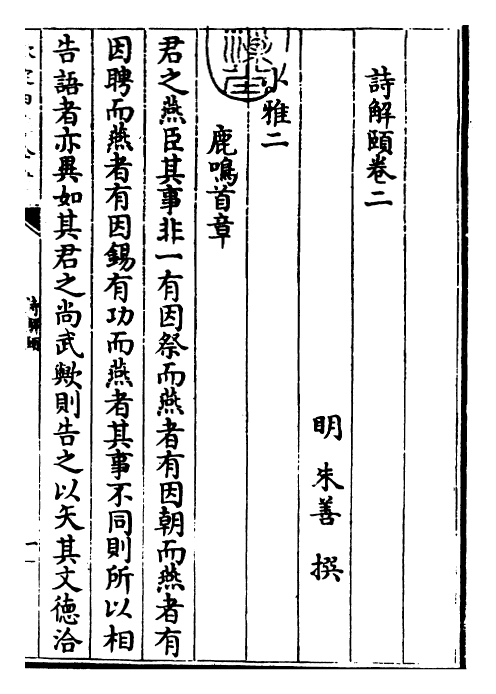 詩解頤卷二
明 朱善 撰
雅二
鹿鳴首章
君之燕臣其事非一有因祭而燕者有因朝而燕者有
因聘而燕者有因錫有功而燕者其事不同則所以相
告語者亦異如其君之尚武歟則告之以矢其文德洽
詩解頤
一